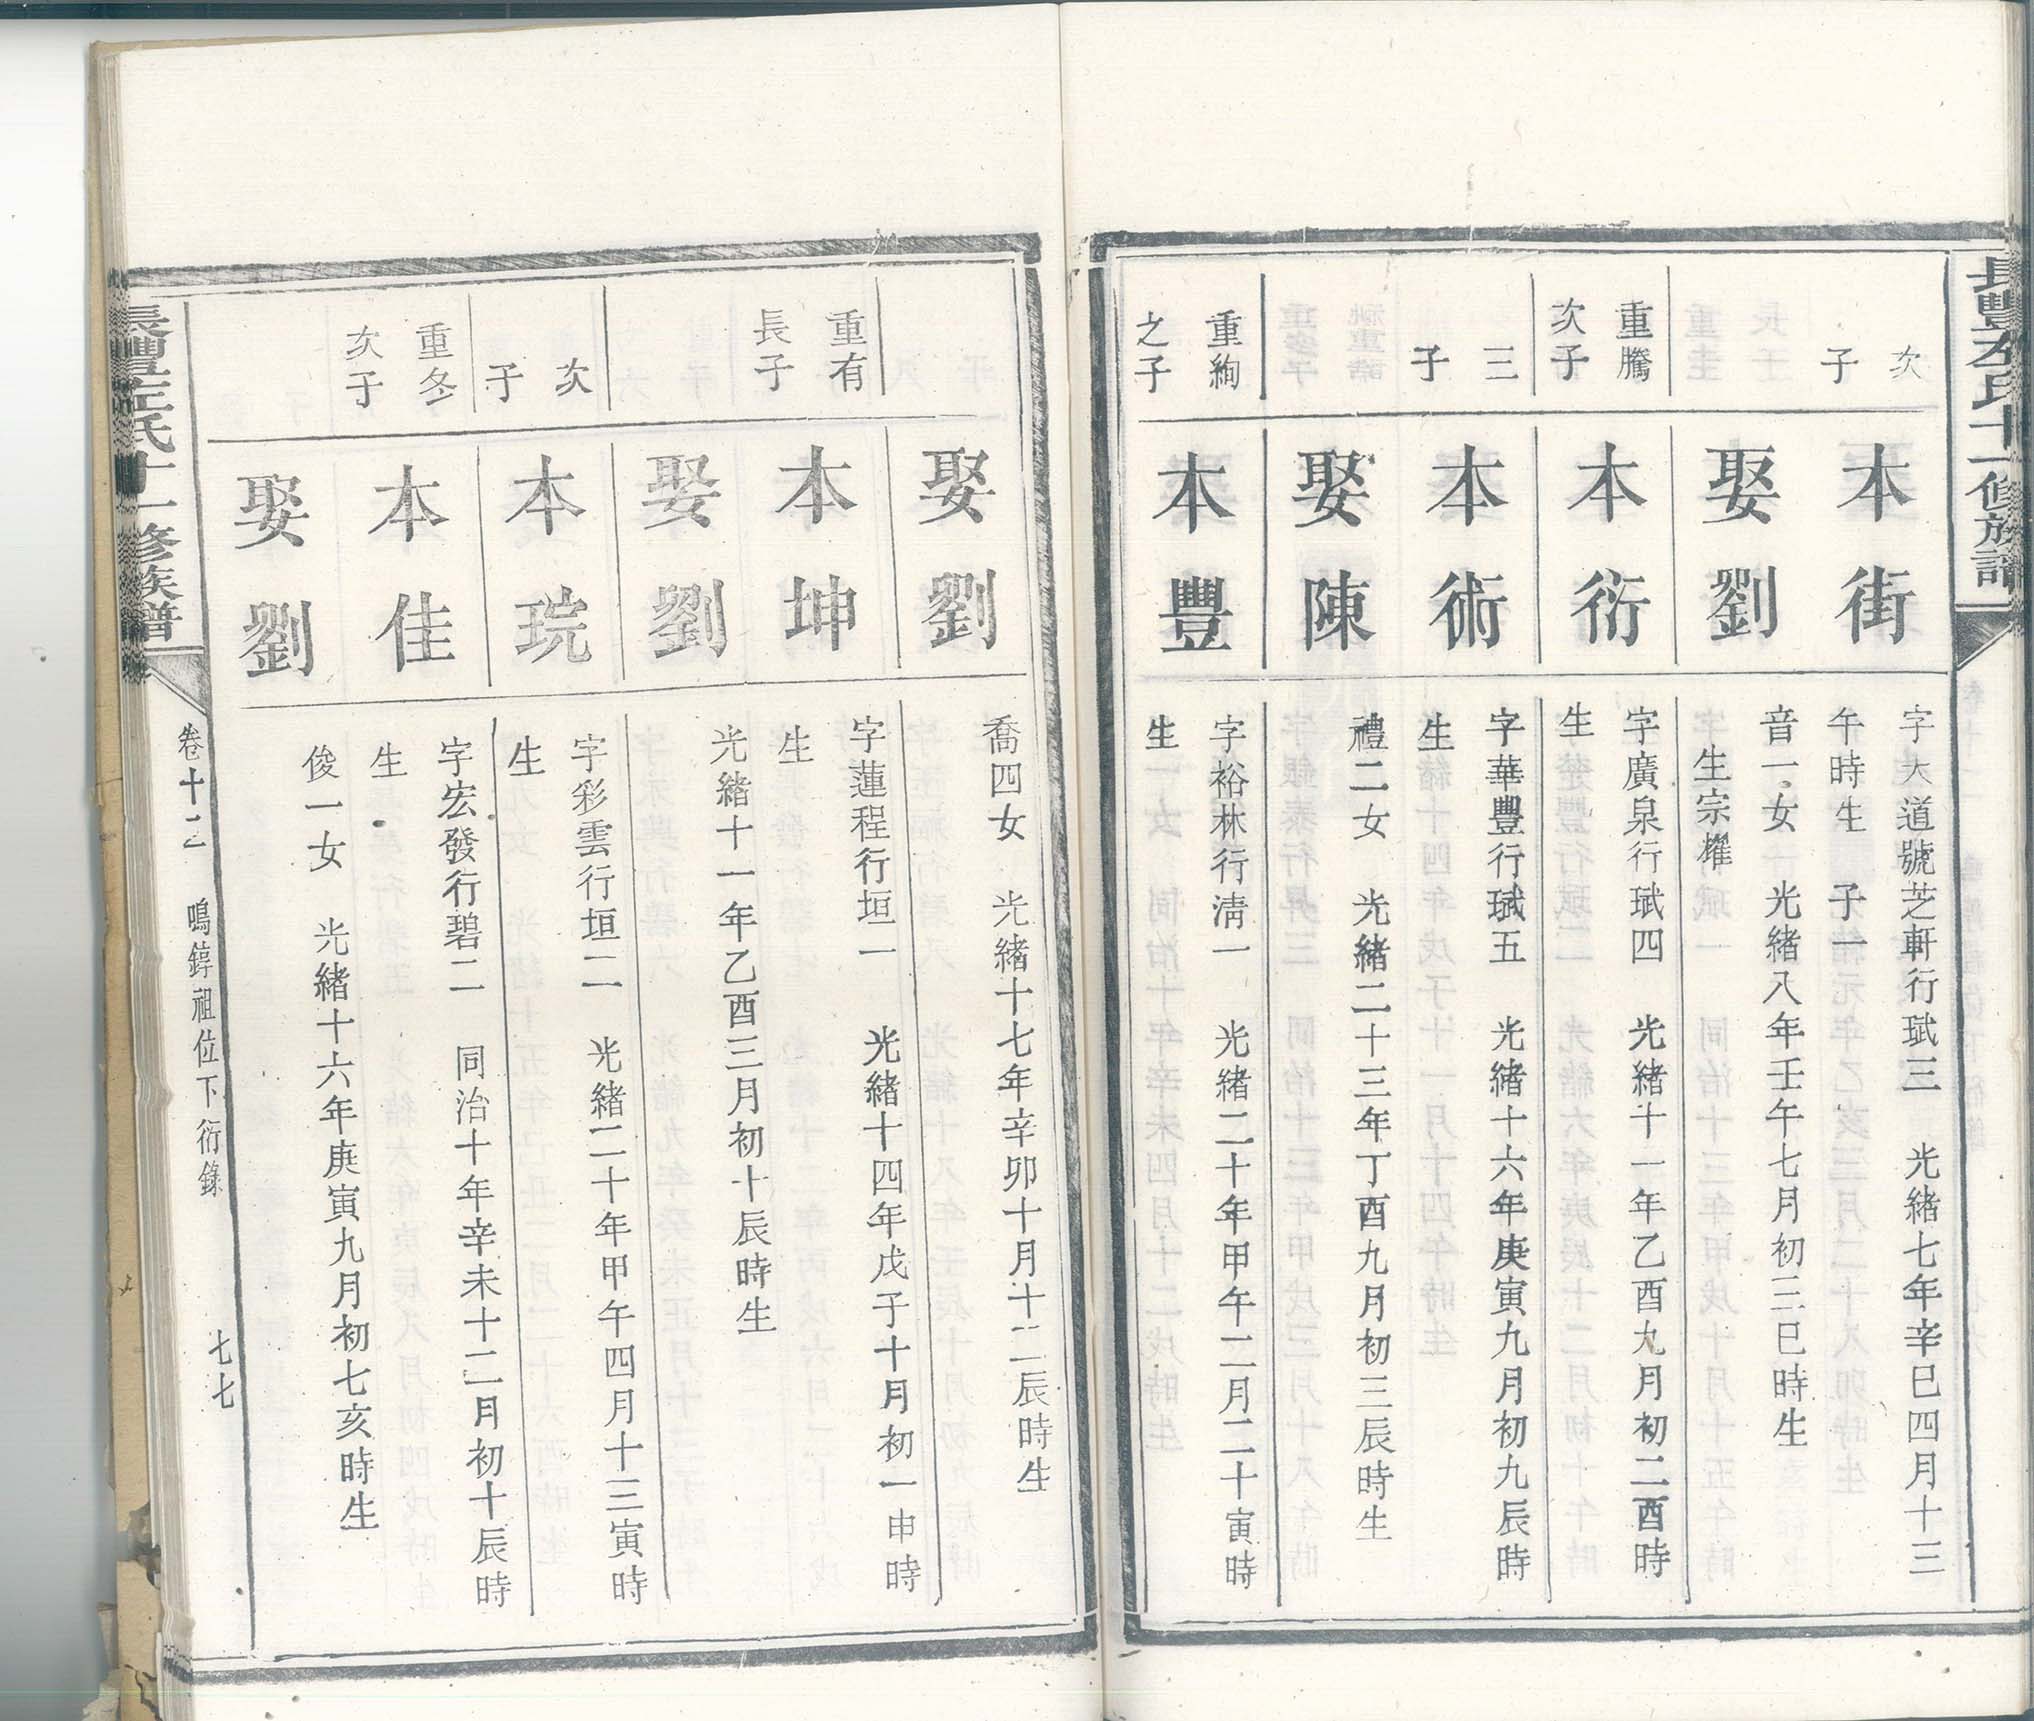 長豐左氏十一修族譜
次
子
本街
字大道號芝軒行珷三 光緒七年辛巳四月十三
午時生 子一
娶劉
音一女 光緒八年壬午七月初三巳時生
生宗燿
重騰
次子
本衍
字廣泉行珷四 光緒十一年乙酉九月初二酉時
生
三
子
本術
字華豐行珷五 光緒十六年庚寅九月初九辰時
生
娶陳
禮二女 光緒二十三年丁酉九月初三辰時生
重絢
之子
本豐
字裕林行清一 光緒二十年甲午二月二十寅時
生
娶劉
喬四女 光緒十七年辛卯十月十二辰時生
重有
長子
本坤
字蓮程行垣一 光緒十四年戊子十月初一申時
生
娶劉
光緒十一年乙酉三月初十辰時生
次
子
本琓
字彩雲行垣二 光緒二十年甲午四月十三寅時
生
重冬
次子
本佳
字宏發行碧二 同治十年辛未十二月初十辰時
生
娶劉
俊一女 光緒十六年庚寅九月初七亥時生
長豐左氏十一修族譜
卷十之 鳴錞祖位下衍錄
七七